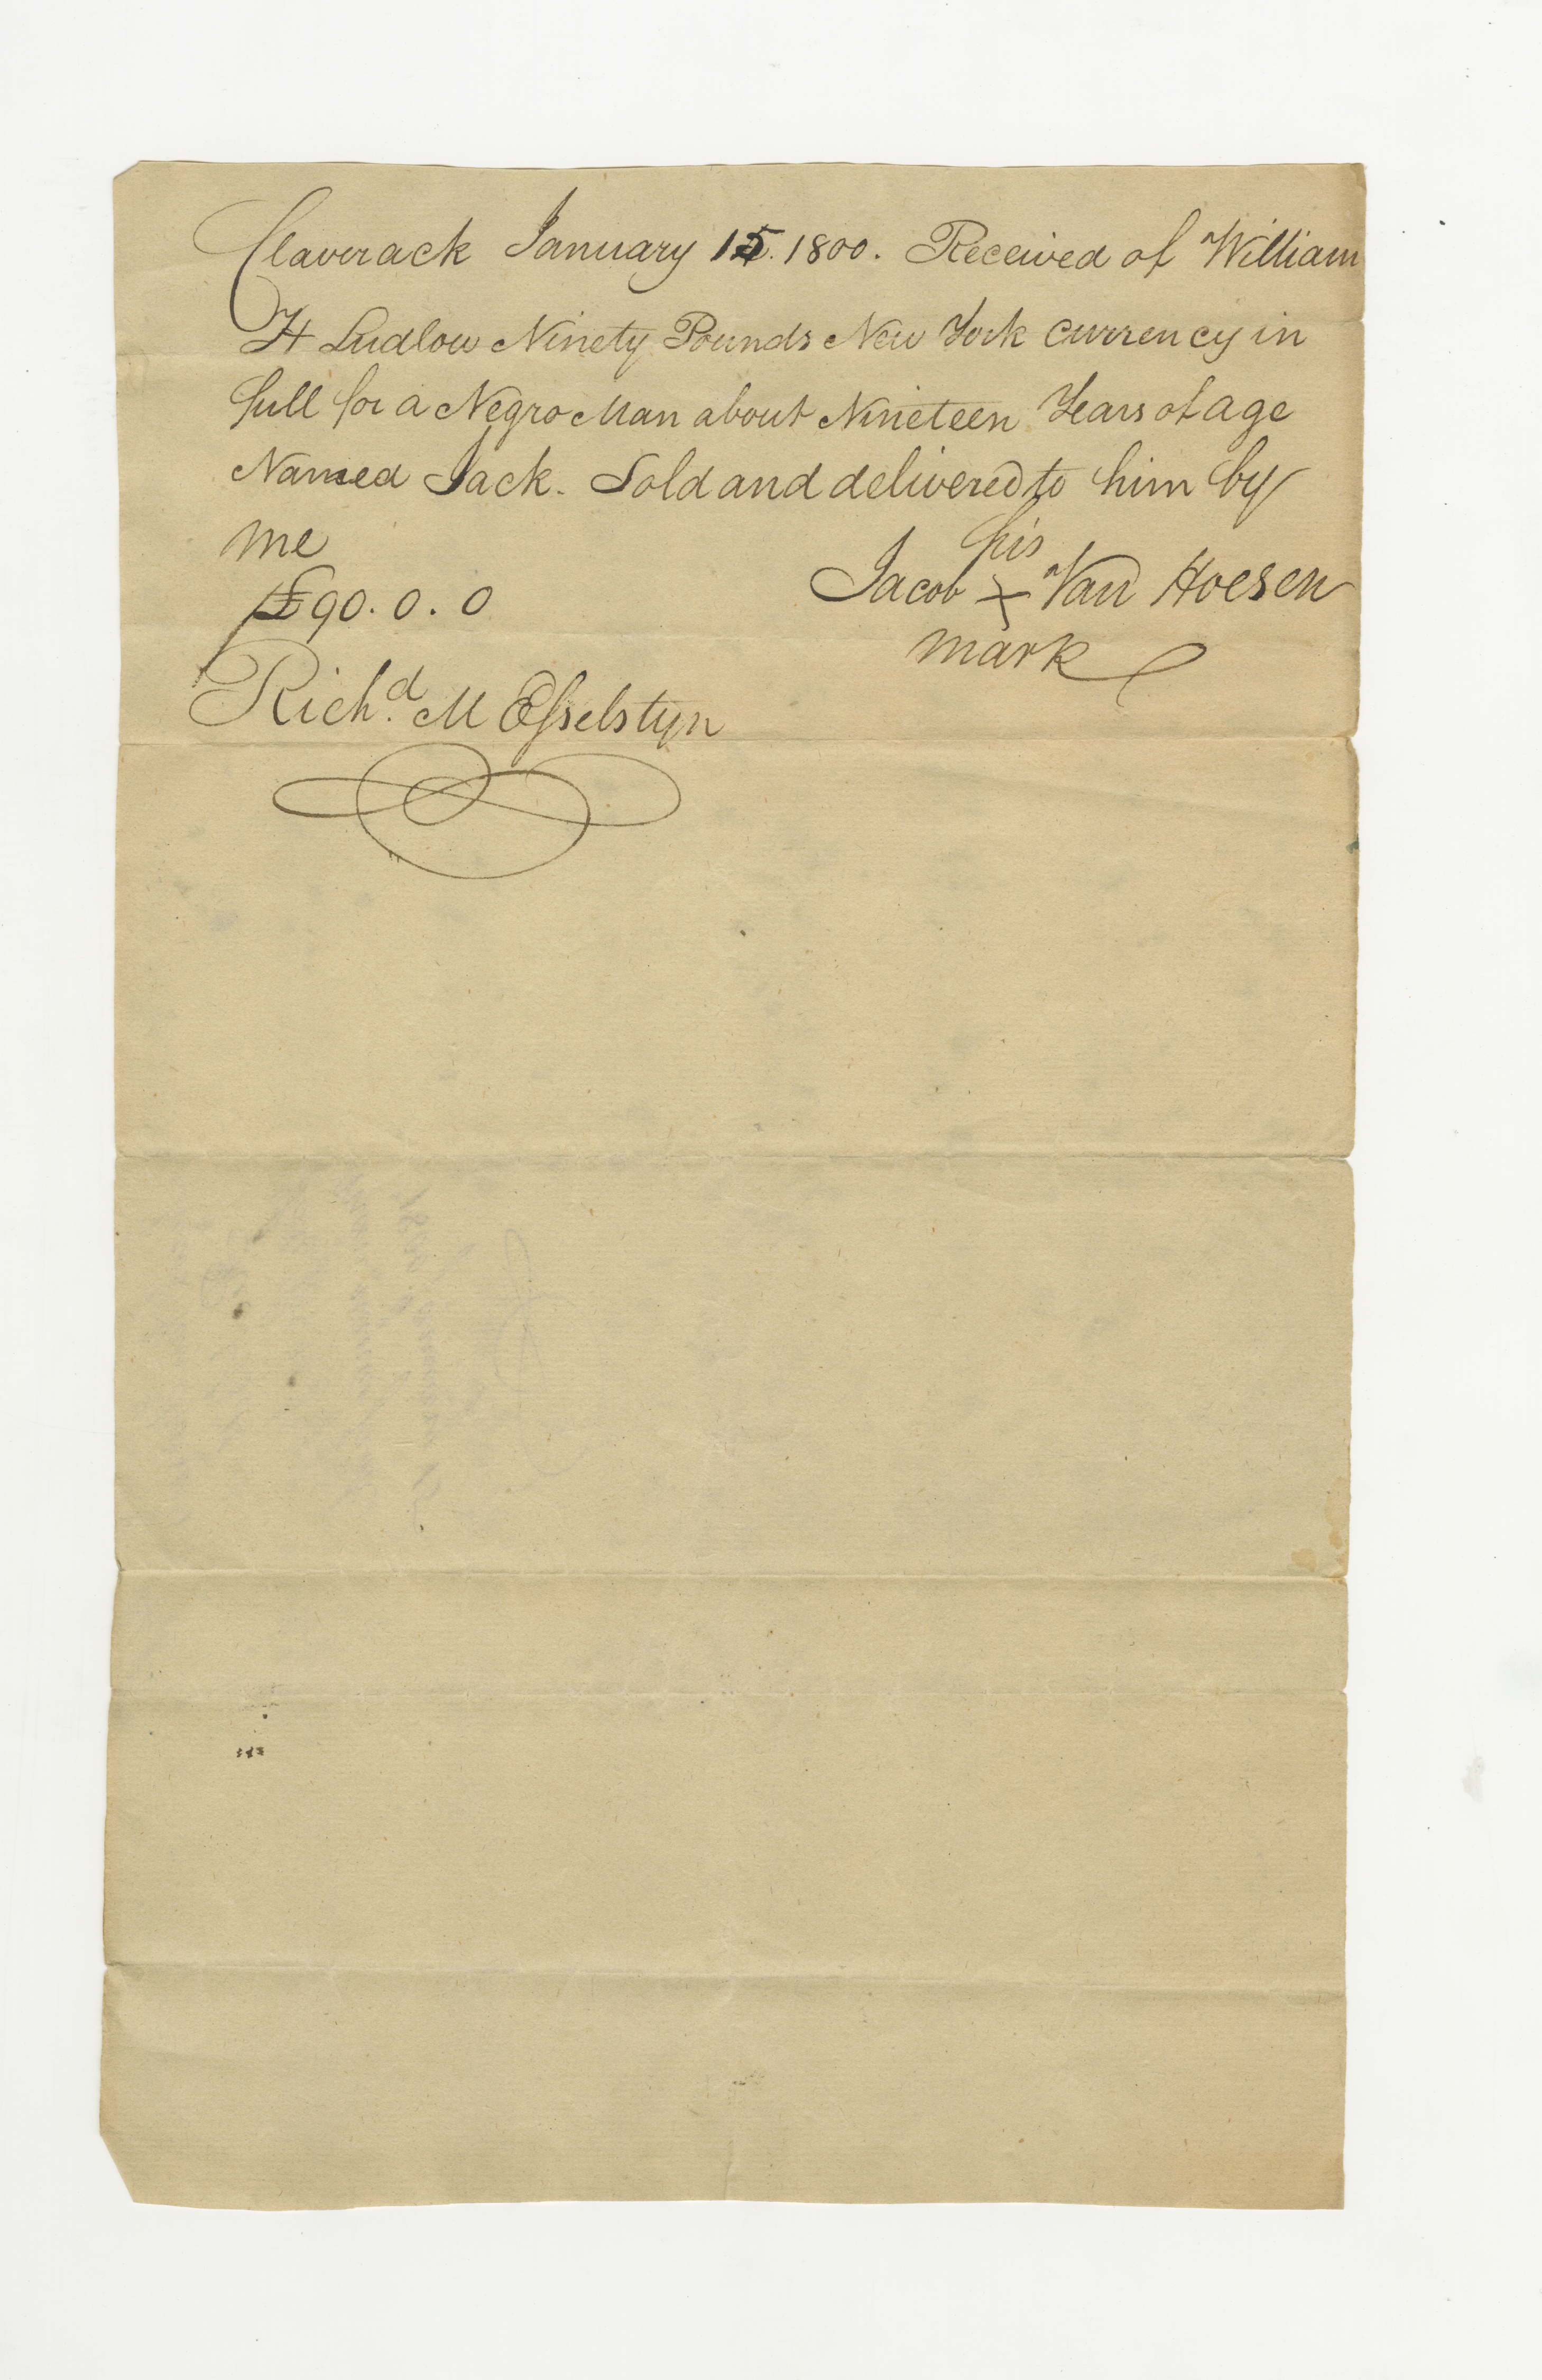 Claverack January 15. 1800. Received of William
H Ludlow Ninety Pounds New York currency in
full for a Negro Man about Nineteen Years of age
Named Jack. Sold and delivered to him by
me
his
Jacob X Van Hoesen
mark
£90. 0. 0
Richd. M Esselstyn